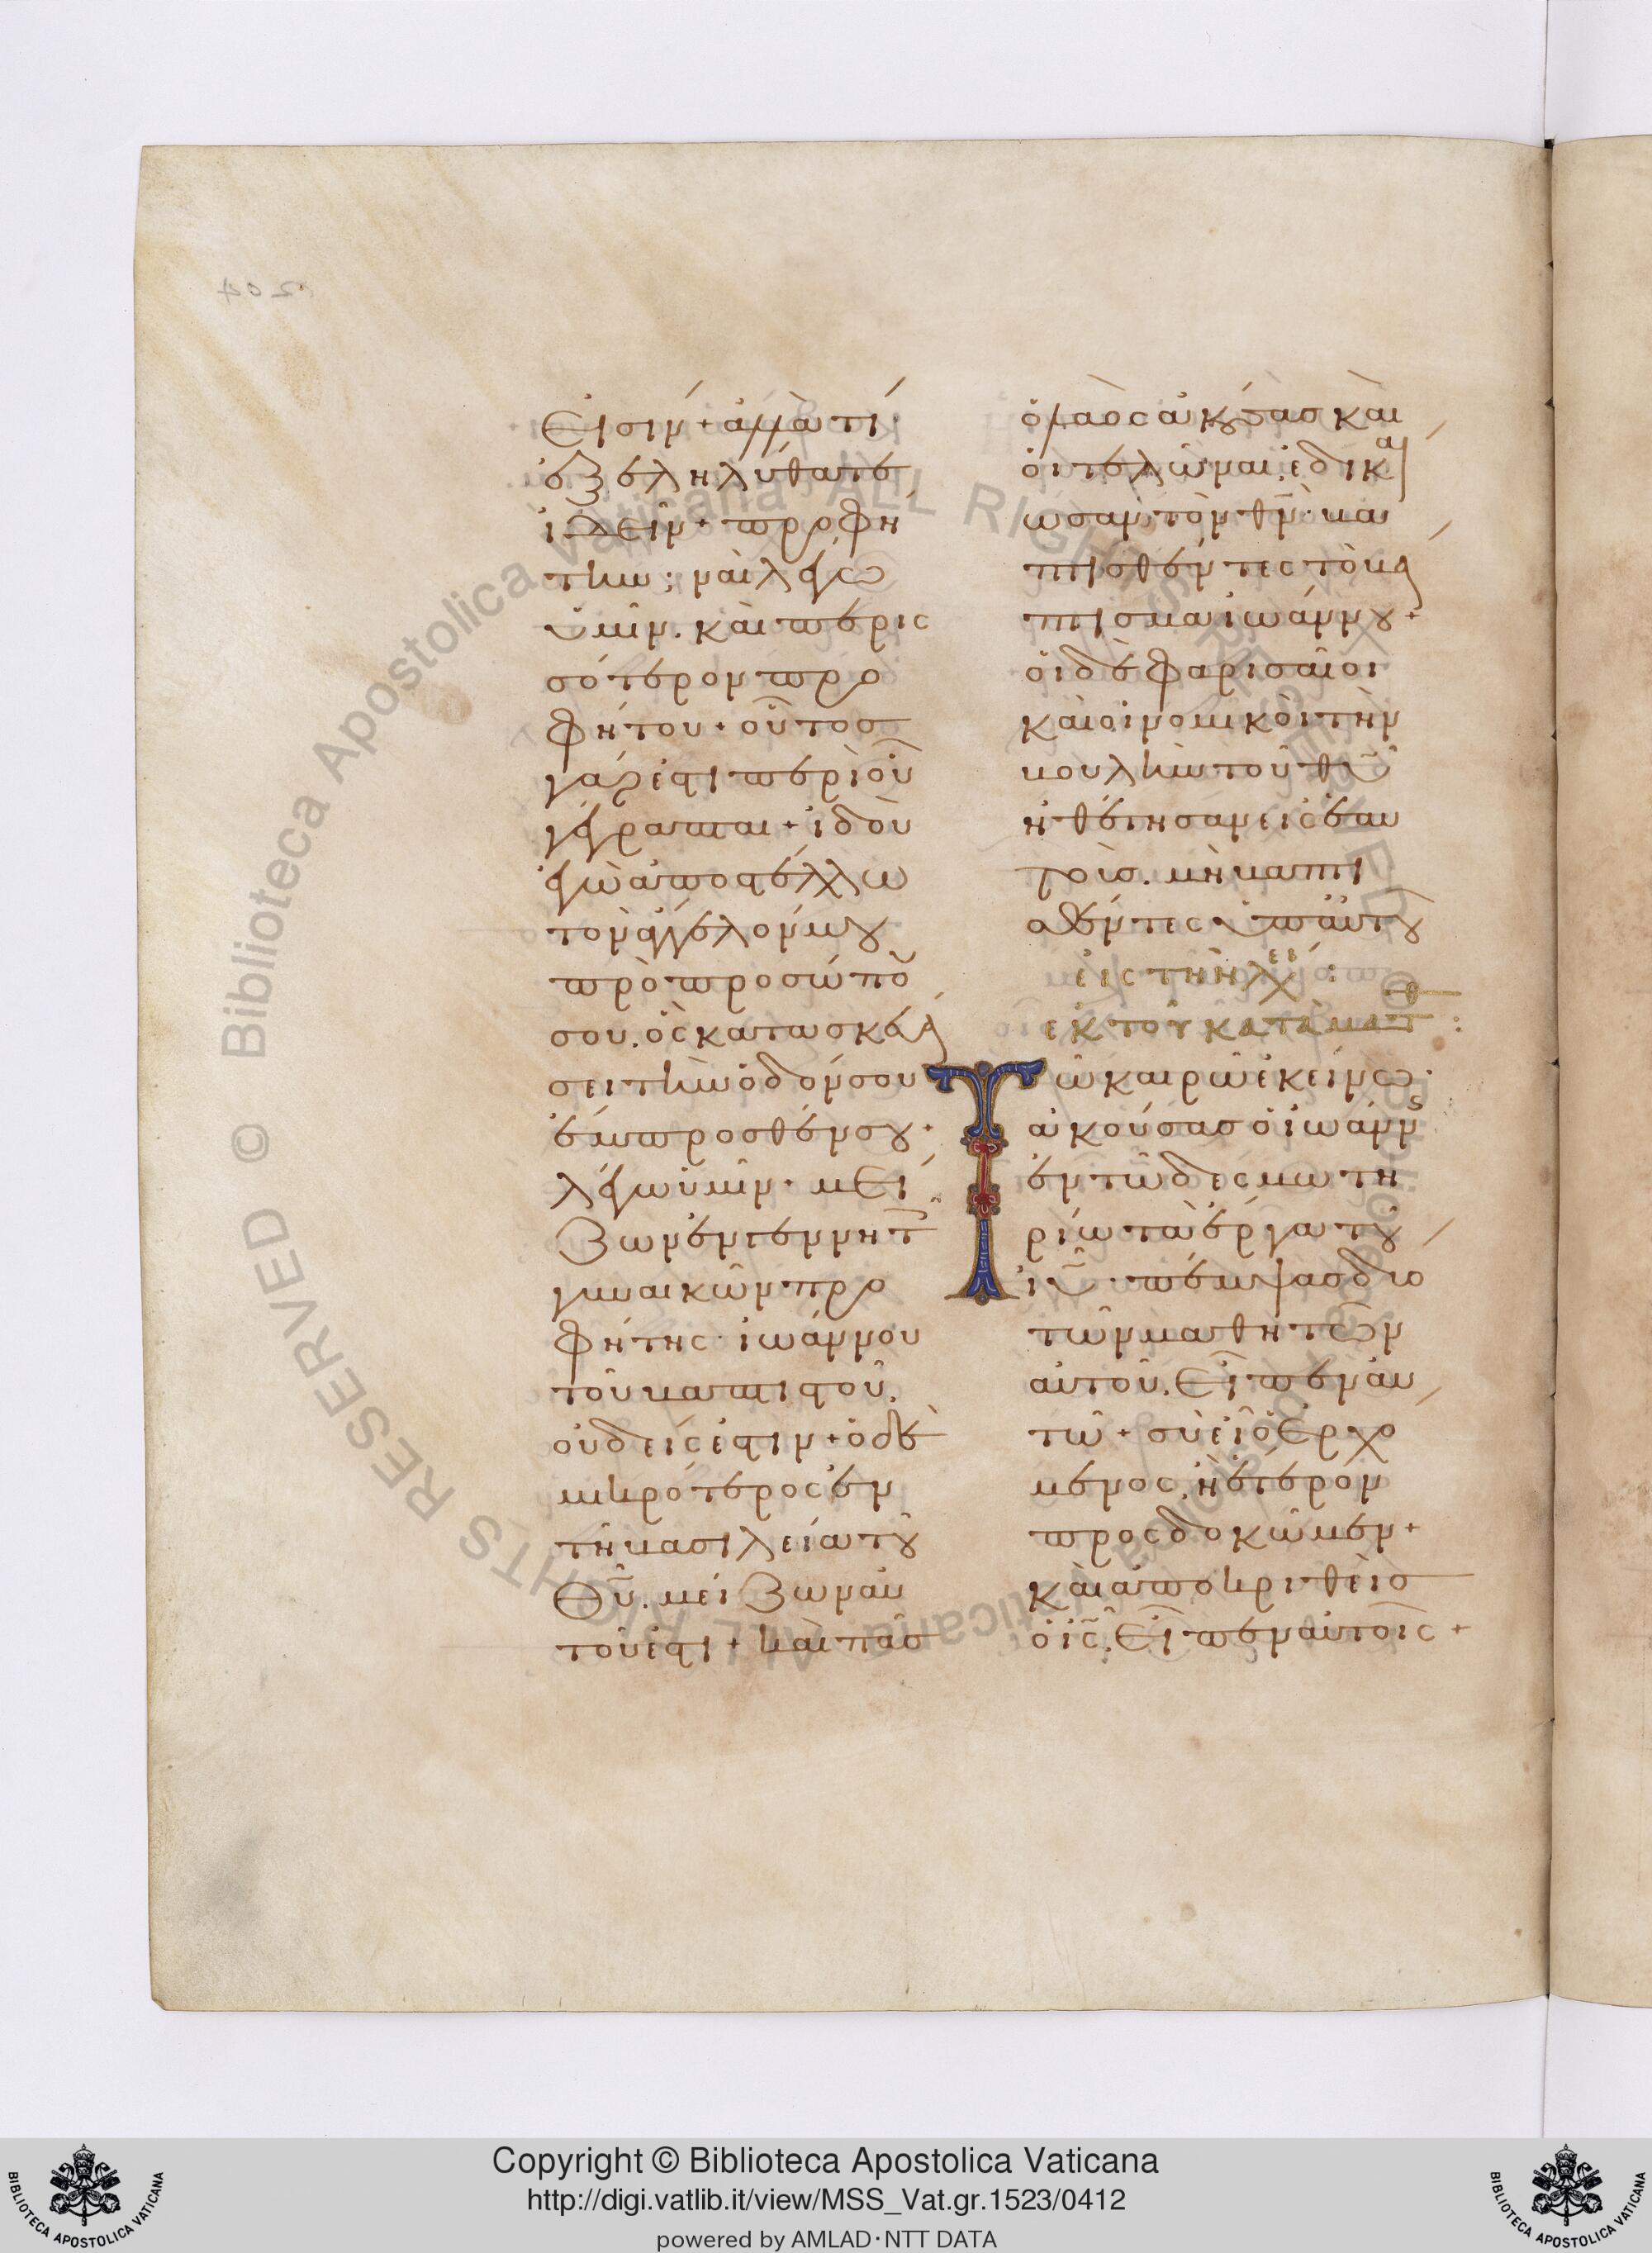 εἰσίν + ἀλλὰ τί
ἐξεληλύθατε
ἰδεῖν + προφή
την; ναὶ λέγω
ὑμῖν. καὶ περισ
σότερον προ
φήτου + οὗτος
γάρ ἐστι περὶ οὗ
γέγραπται + ἰδοὺ
ἐγὼ ἀποστέλλω
τὸν ἄγγελόν μου
πρὸ προσώπου
σου. ὃς κατασκευά
σει τὴν ὁδόν σου
ἔμπροσθέν σου +
λέγω ὑμῖν + μεί
ζων ἐν γεννητ
γυναικῶν προ
φήτης ἰωάννου
τοῦ βαπτιστοῦ.
οὐδείς ἐστιν + ὁ δὲ
μικρότερος ἐν
τῆ βασιλεία τοῦ
θῦ. μείζων αὐ
τοῦ ἐστι + καὶ πᾶσ
ὁ λαὸς ἀκούσας καὶ
οἱ τελῶναι ἐδικαί
ωσαν τὸν θν. βα
πτισθέντες τὸ βά
πτισμα ἰωάννου +
οἱ δὲ φαρισαῖοι
καὶ οἱ νομικοὶ τὴν
βουλὴν τοῦ θῦ
ἠθέτησαν εἰς ἑαυ
τοὺς. μὴ βαπτι
σθέντες ὑπ αὐτοῦ
εἰς τὴν λχ ει :
ἐκ τοῦ κατὰ ματθ :
Τῶ καιρῶ ἐκείνω.
ἀκούσας ὁ ἰωάννς
ἐν τῶ δεσμωτη
ρίω τὰ ἔργα τοῦ
ιῦ. πέμψας δύο
τῶν μαθητῶν
αὐτοῦ. εἶπεν αὐ
τῶ + σὺ εἶ ὁ ἐρχό
μενος. ἢ ἕτερον
προσδοκῶμεν +
καὶ ἀποκριθεὶς
ὁ ις. εἶπεν αὐτοῖς +
Copyright © Biblioteca Apostolica Vaticana
http://digi.vatlib.it/view/MSS_Vat.gr.1523/0412
powered by AMLAD·NTT DATA
BIBLIOTECA APOSTOLICA VATICANA
BIBLIOTECA APOSTOLICA VATICANA
© Biblioteca Apostolica Vaticana ALL RIGHTS RESERVED
© Biblioteca Apostolica Vaticana ALL RIGHTS RESERVED